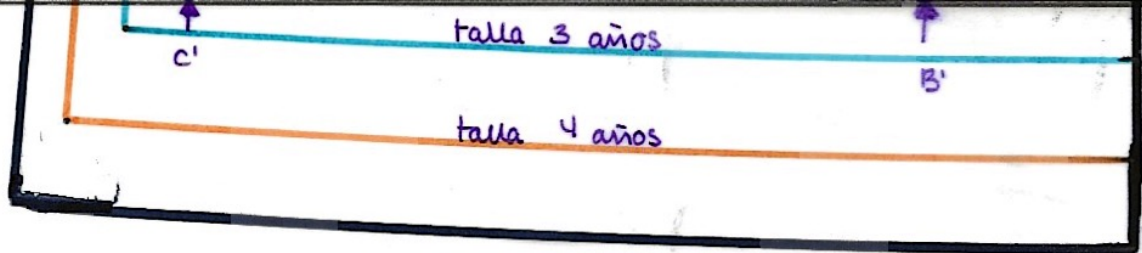 talla 3 años
C'
B'
talla 4 años